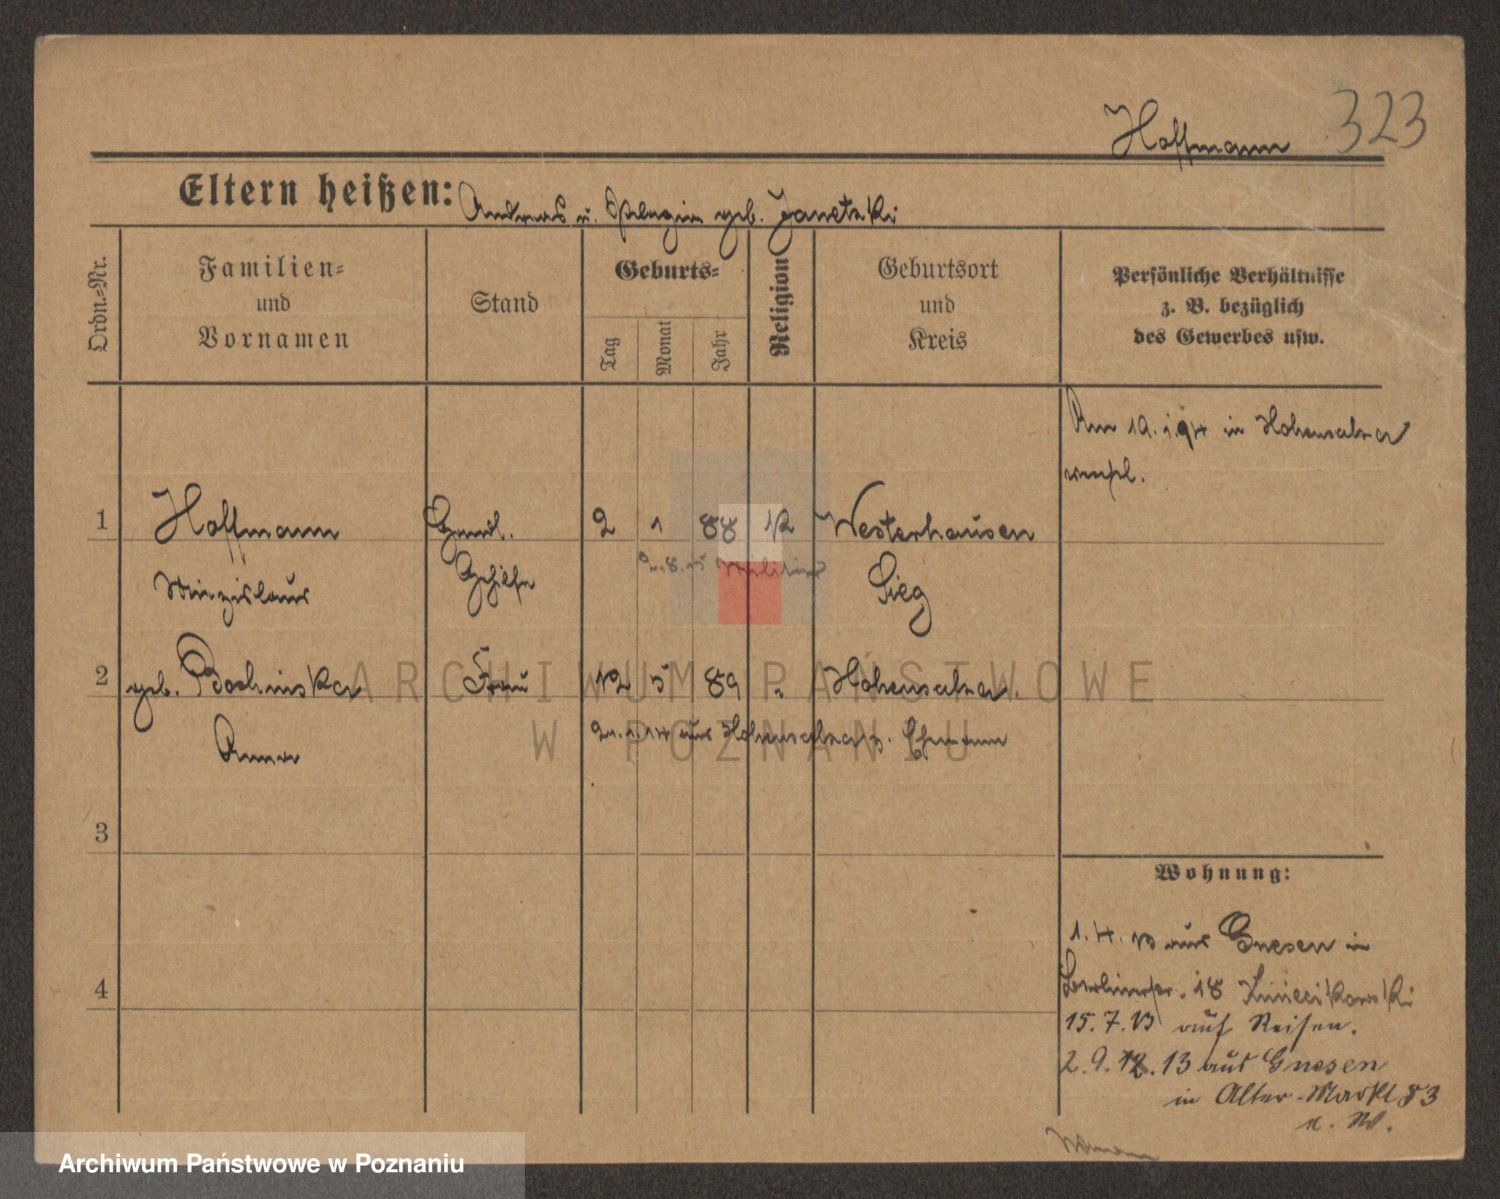 Hoffmann 323
Eltern heißen: Andreas u. Pelagia geb. Janetzki
Ordn.-Nr.
Familien-
und
Vornamen
Stand
Geburts-
Tag
Monat
Jahr
Religion
Geburtsort
und
Kreis
Persönliche Verhältnisse
z. B. bezüglich
des Gewerbes usw.
Am 19. 1. 94 in Hohensalza
1 Hoffmann Handl. 2 1 88 k Westerhausen
Gehilfe Sieg
2. 8. 15 Militär
2 geb. Frau 12 5 89 " Hohensalza
Anna 21. 1. 14 aus Hohensalza z. Ehemann
3
4
Wohnung:
1. 4. 13 aus Gnesen in
Berlinerstr. 18
15. 7. 13 auf Reisen.
2. 9. 13 aus Gnesen
in Alter-Markt 83
ARCHIWUM PAŃSTWOWE
W POZNANIU
Archiwum Państwowe w Poznaniu